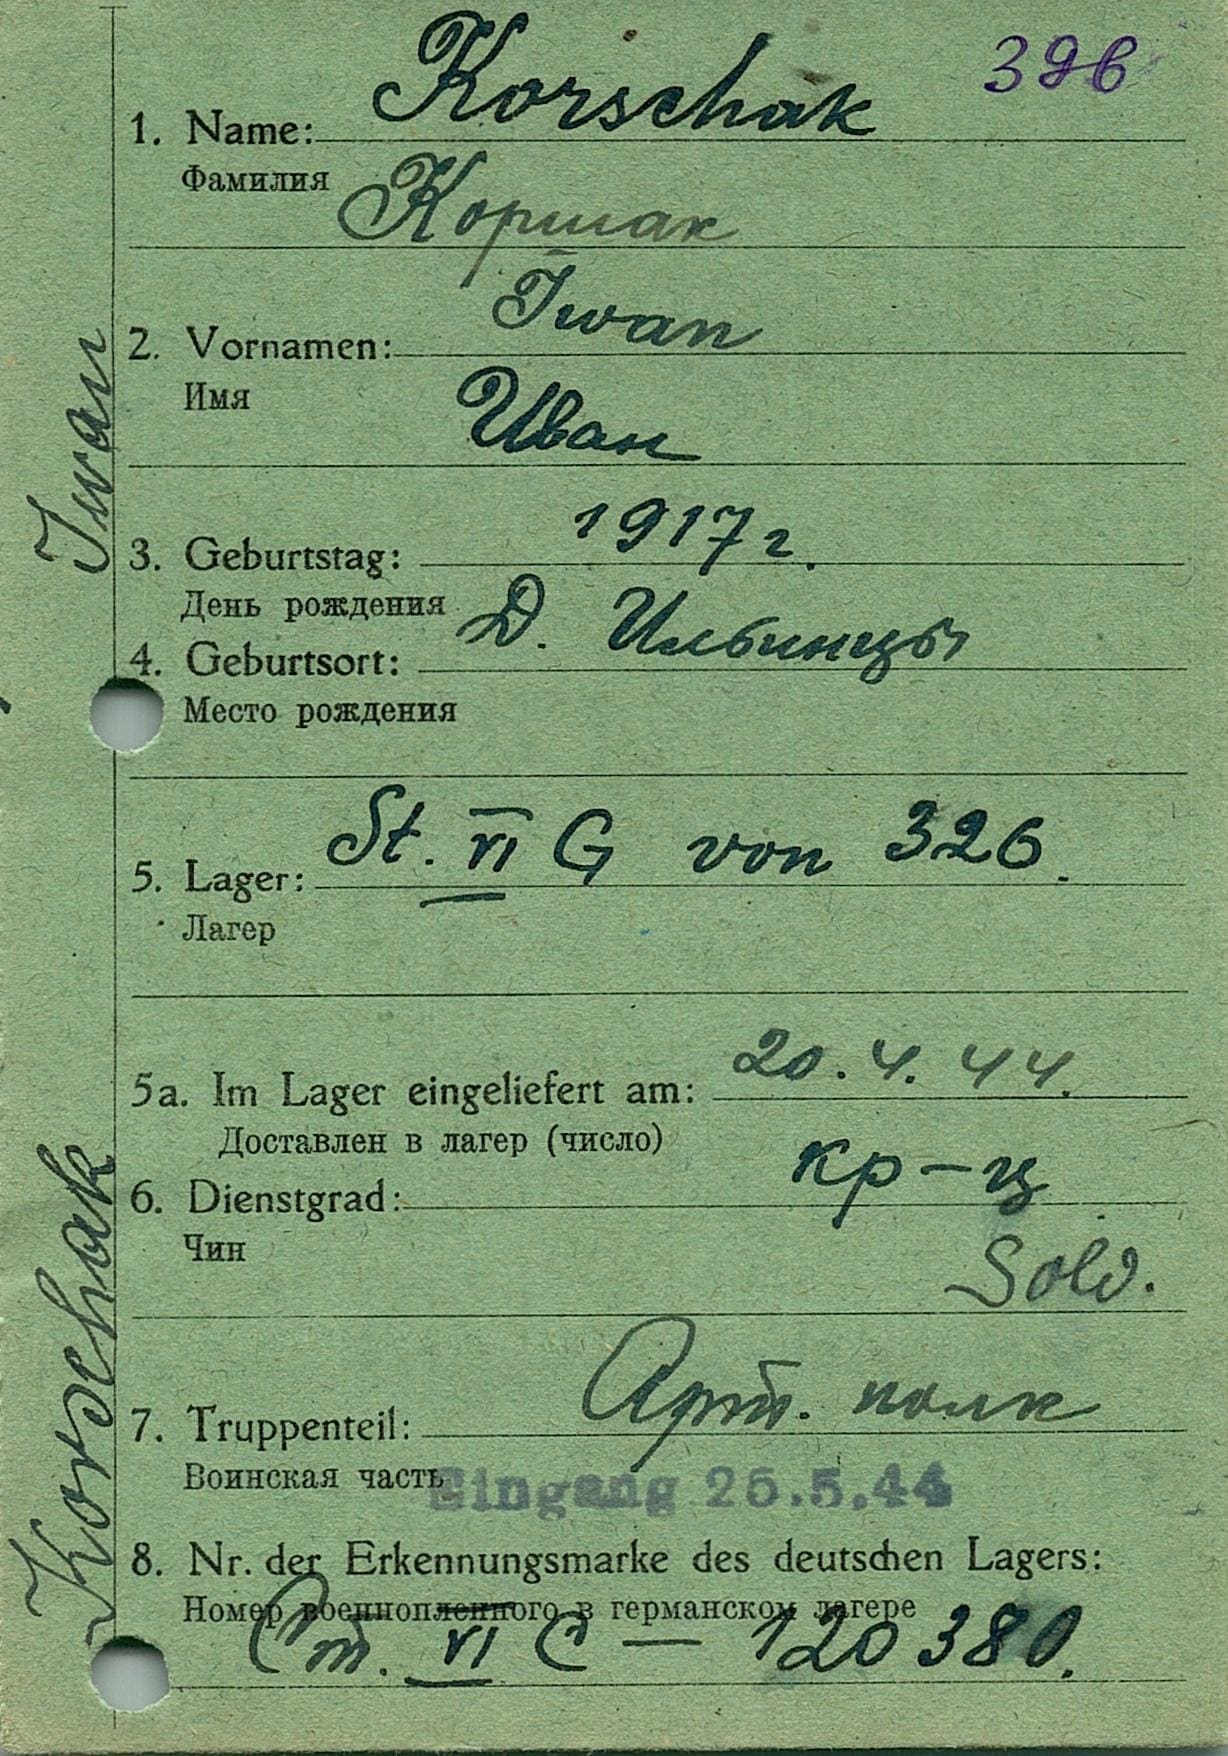 326
Korschak
1. Name:
Фамилия
Коршак
Iwan
2. Vornamen:
Имя
Иван
1917 г.
3. Geburtstag:
День рождения
Д. Ильинцы
4. Geburtsort:
Место рождения
St. VI G von 326.
5. Lager:
Лагер
5a. Im Lager eingeliefert am: 20.4.44.
Доставлен в лагер (число)
6. Dienstgrad: кр-ц
Чин
Sold.
7. Truppenteil: Арт. полк
Воинская часть
Eingang 26.5.44
8. Nr. der Erkennungsmarke des deutschen Lagers:
Номер военнопленного в германском лагере
Ст. VI C — 120380.
Korschak Iwan